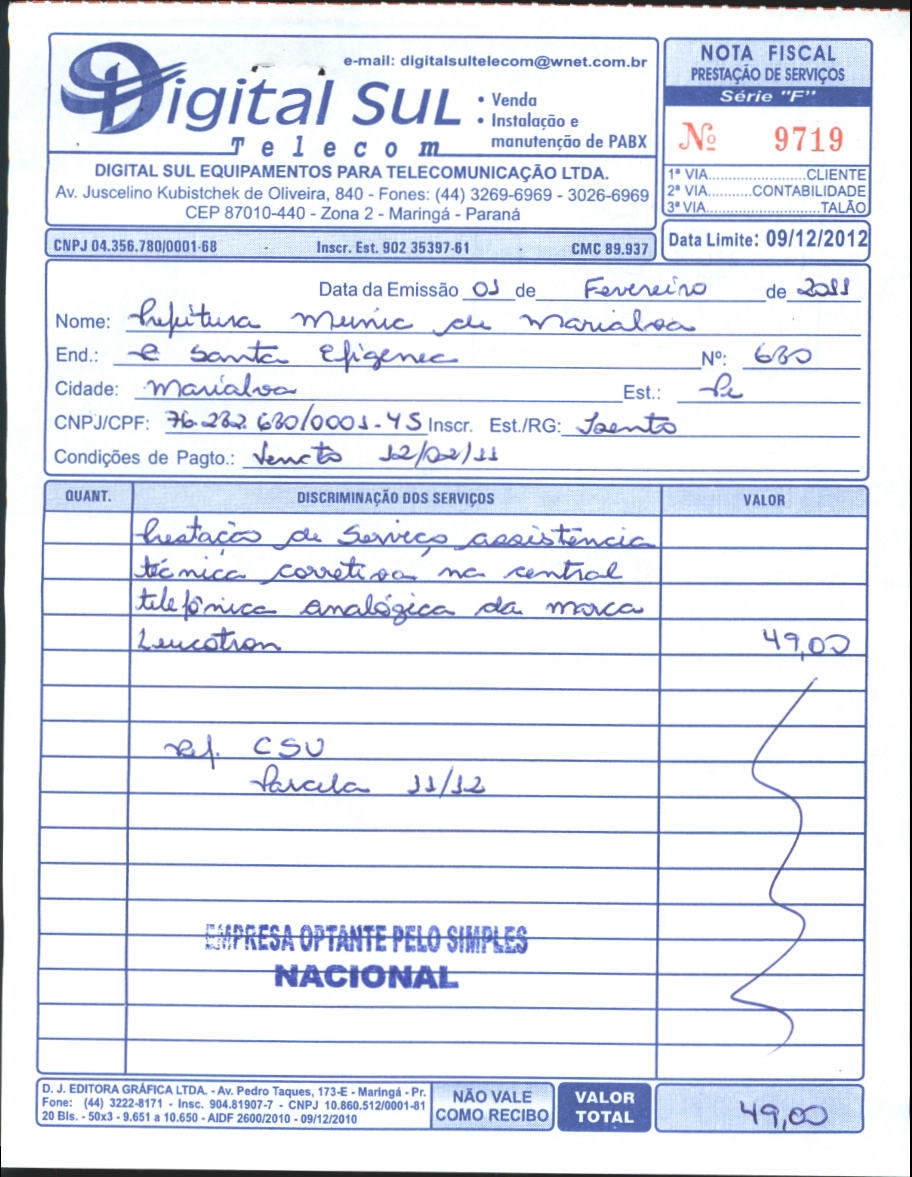 e-mail: digitalsultelecom@wnet.com.br
Digital Sul
Telecom
• Venda
• Instalação e
manutenção de PABX
DIGITAL SUL EQUIPAMENTOS PARA TELECOMUNICAÇÃO LTDA.
Av. Juscelino Kubistchek de Oliveira, 840 - Fones: (44) 3269-6969 - 3026-6969
CEP 87010-440 - Zona 2 - Maringá - Paraná
NOTA FISCAL
PRESTAÇÃO DE SERVIÇOS
Série "F"
Nº 9719
1ª VIA......................CLIENTE
2ª VIA..........CONTABILIDADE
3ª VIA..........................TALÃO
CNPJ 04.356.780/0001-68 - Inscr. Est. 902 35397-61 CMC 89.937
Data Limite: 09/12/2012
Data da Emissão 01 de Fevereiro de 2011
Nome: Prefeitura Munic de Marialva
End.: R Santa Efigenea Nº: 680
Cidade: Marialva Est.: Pr
CNPJ/CPF: 76.282.680/0001-45 Inscr. Est./RG: Isento
Condições de Pagto.: Vencto 12/02/11
QUANT. DISCRIMINAÇÃO DOS SERVIÇOS VALOR
Prestação de Serviço assistência
técnica corretiva na central
telefônica analógica da marca
Leucotron 49,00
Ref. CSU
Parcela 11/12
EMPRESA OPTANTE PELO SIMPLES
NACIONAL
D. J. EDITORA GRÁFICA LTDA. - Av. Pedro Taques, 173-E - Maringá - Pr.
Fone: (44) 3222-8171 - Insc. 904.81907-7 - CNPJ 10.860.512/0001-81
20 Bls. - 50x3 - 9.651 a 10.650 - AIDF 2600/2010 - 09/12/2010
NÃO VALE
COMO RECIBO
VALOR
TOTAL
49,00